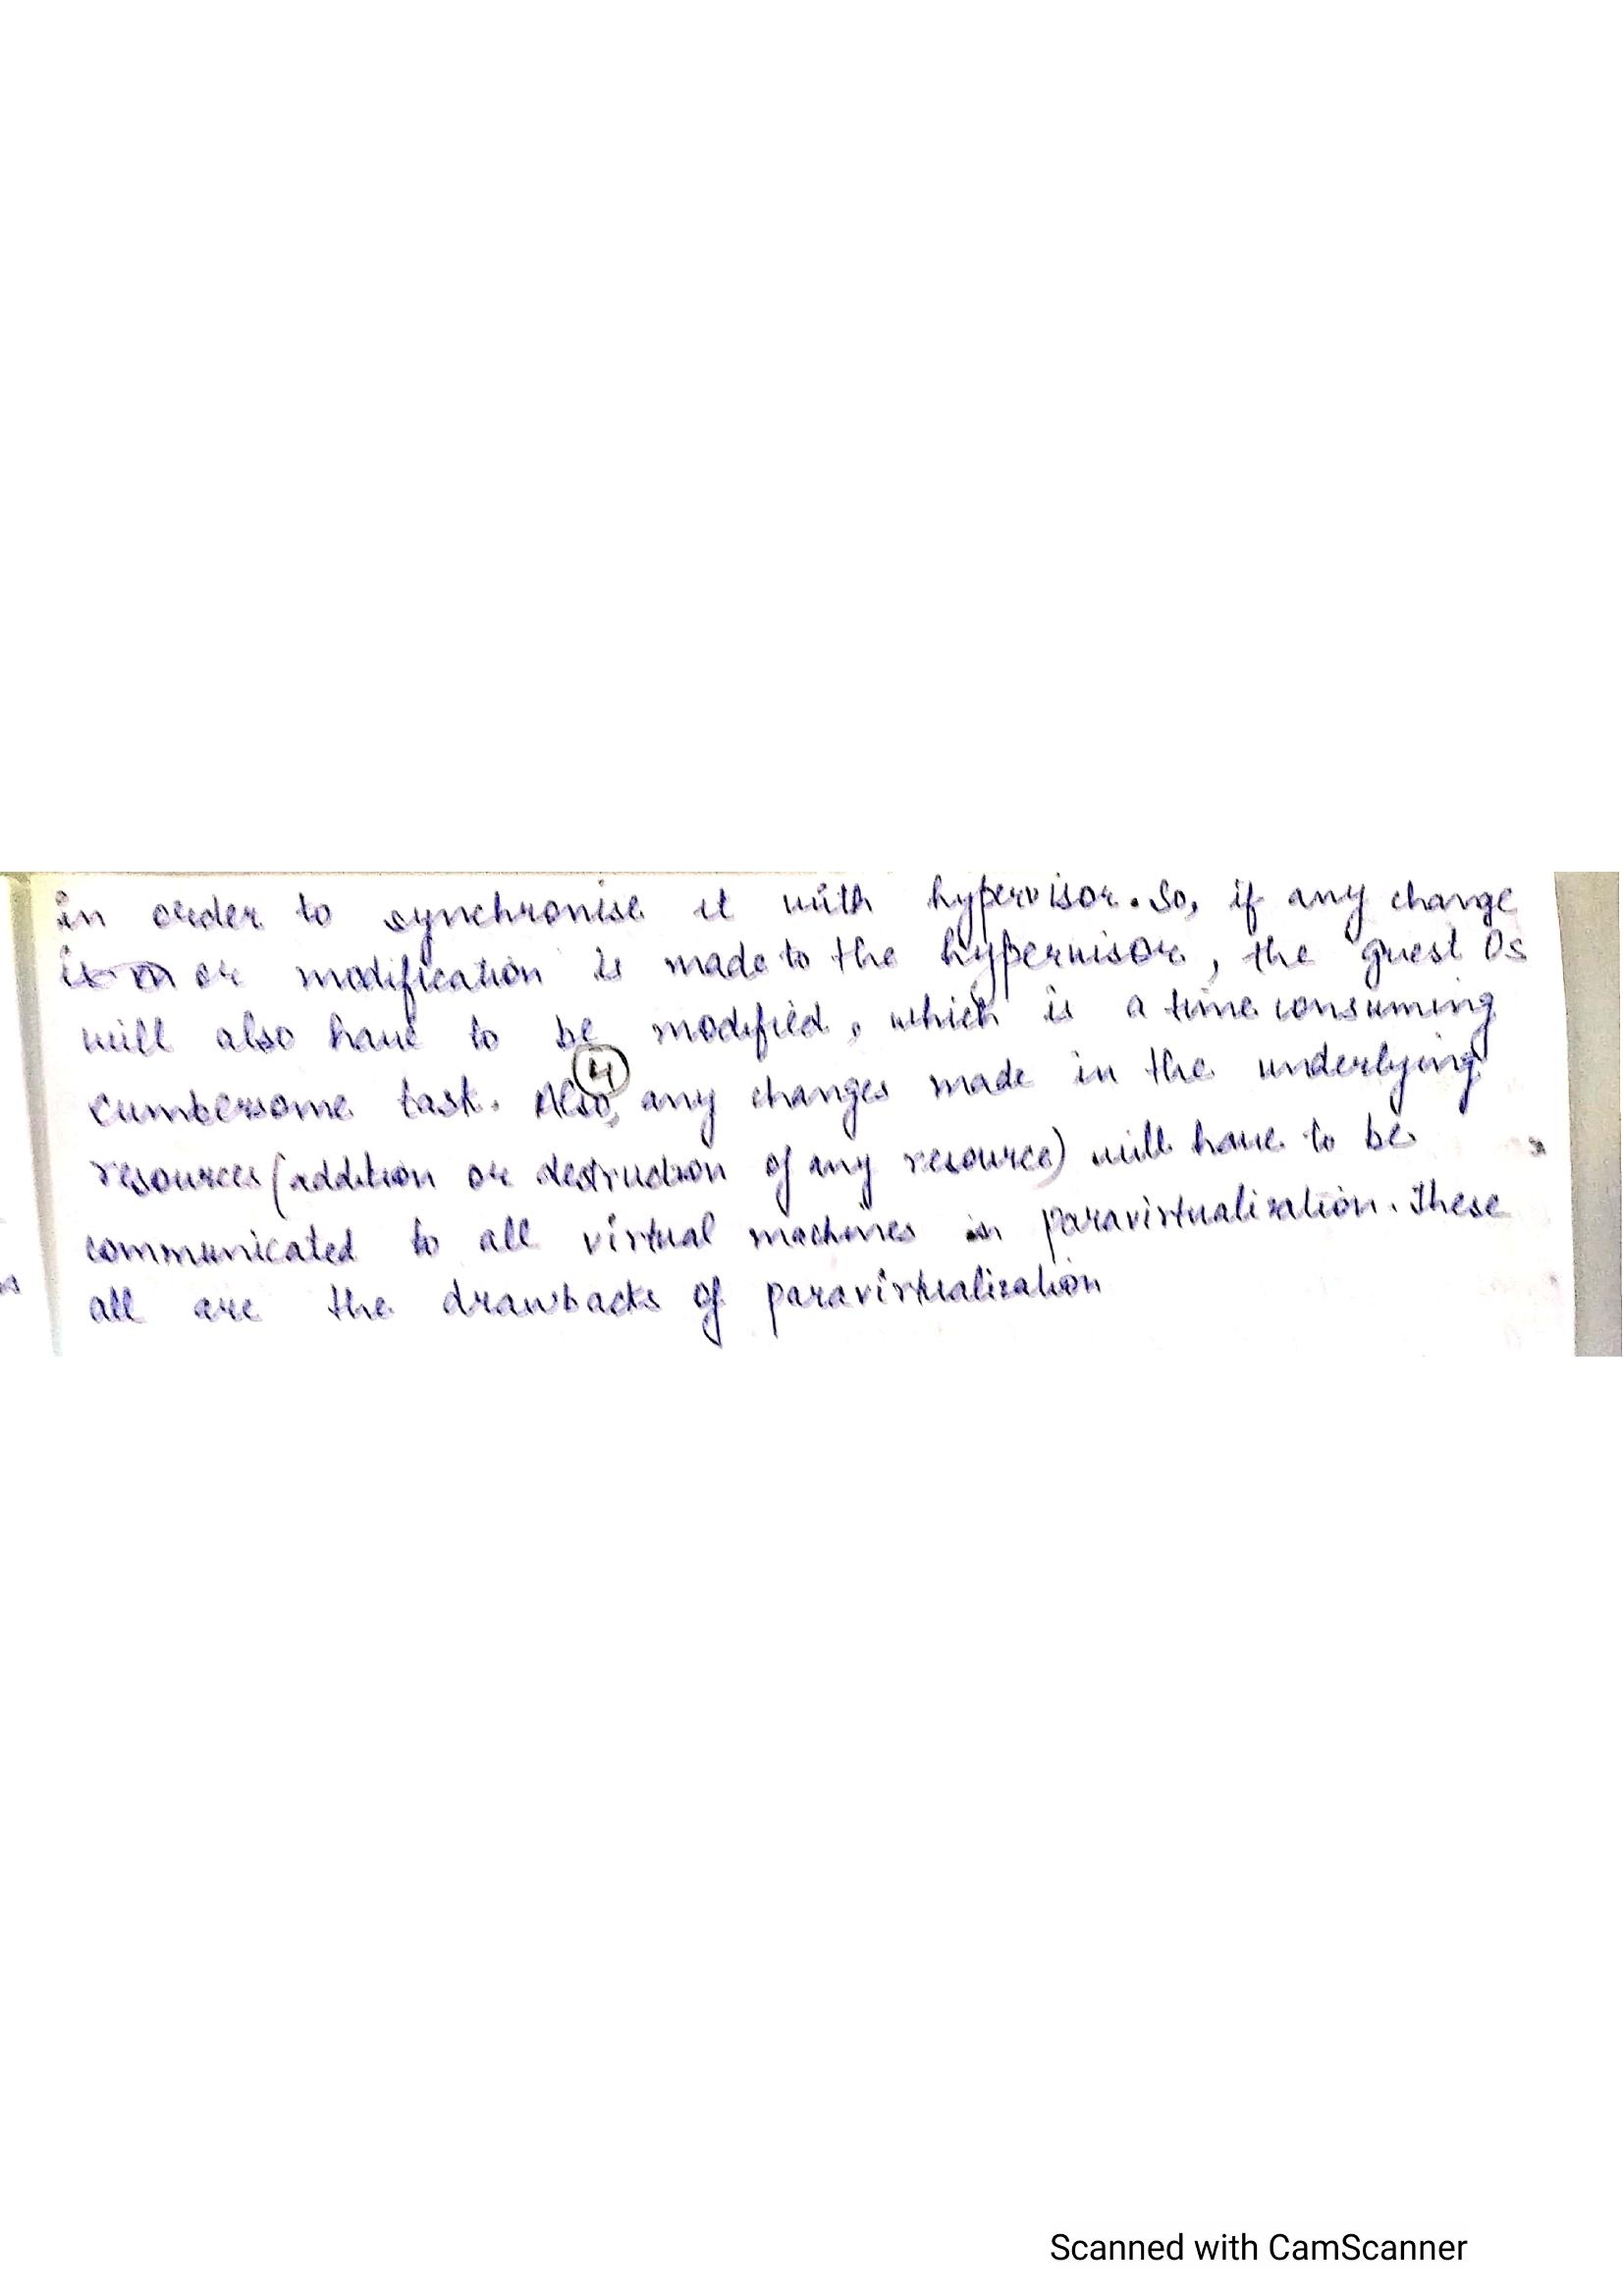 in order to synchronise it with hypervisor. So, if any change
or modification is made to the hypervisor, the guest Os
will also have to be modified, which is a time consuming
4
cumbersome task. Also, any changes made in the underlying
resources (addition or destruction of any resource) will have to be
communicated to all virtual machines in paravirtualization. These
all are the drawbacks of paravirtualization
Scanned with CamScanner